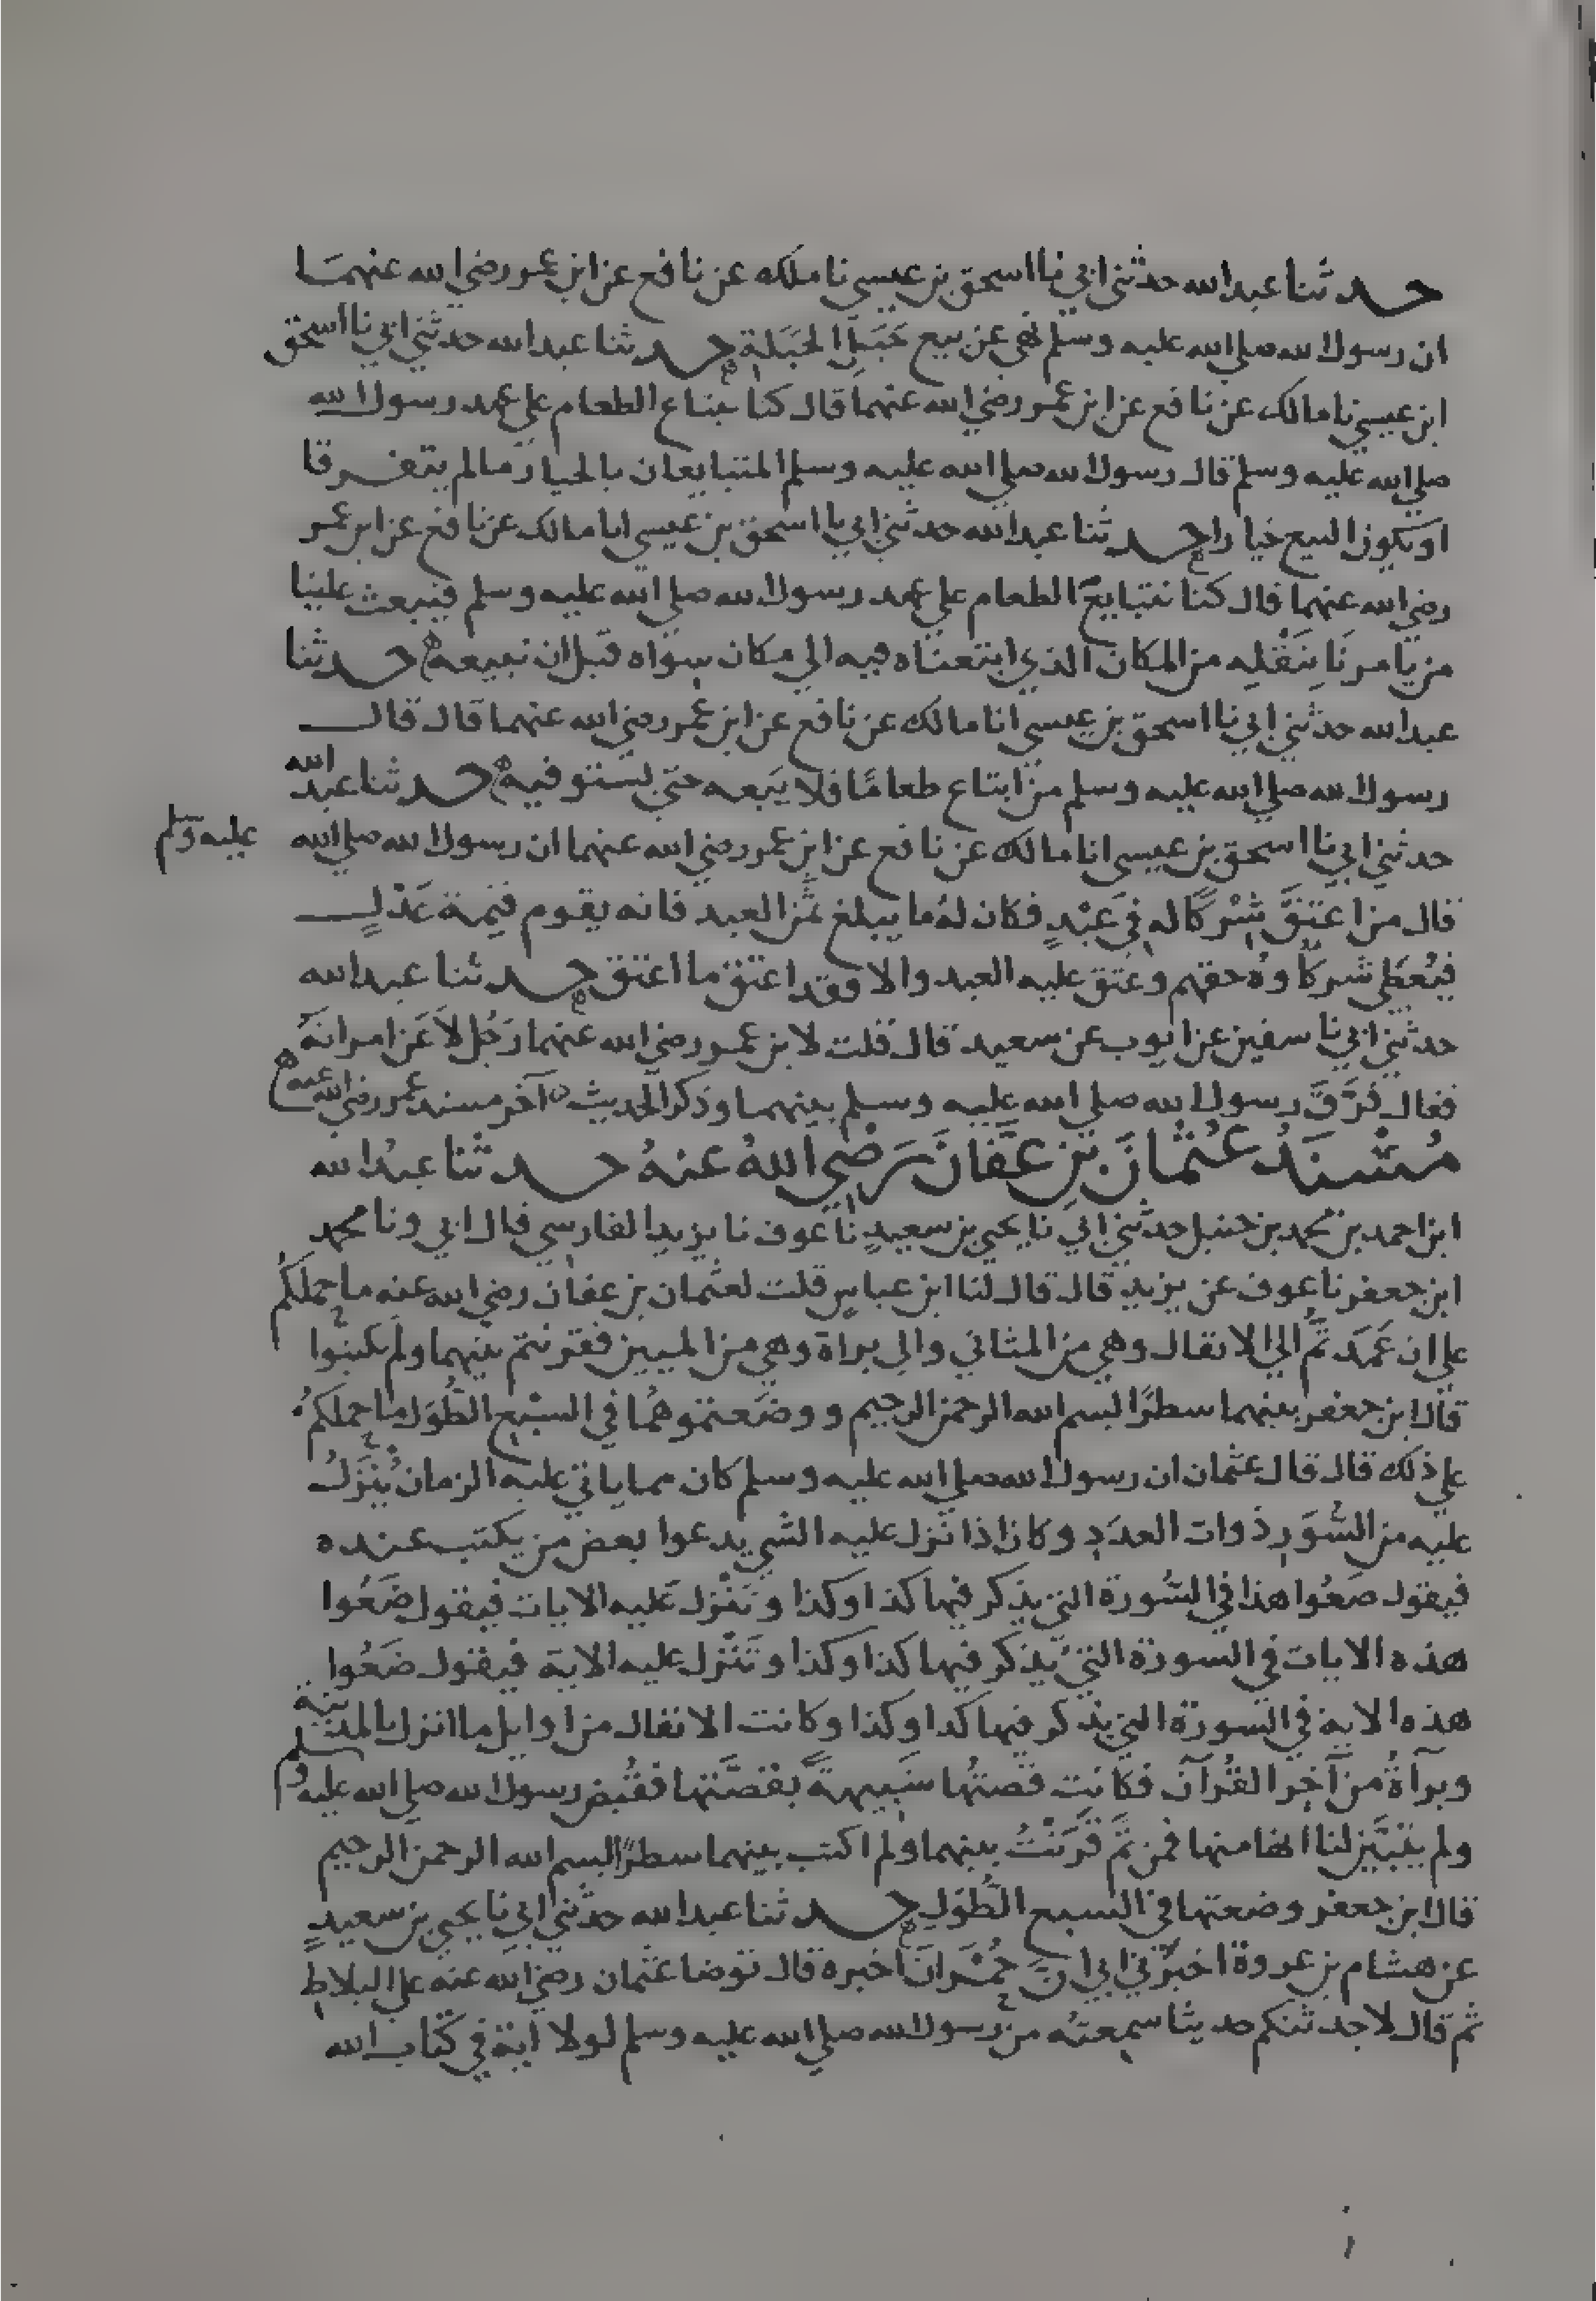 حدثنا عبد الله حدثني ابي نا اسحق بن عيسى نا ملك عن نافع عن ابن عمر رضي الله عنهما
ان رسول الله صلى الله عليه وسلم نهى عن بيع حَبَلِ الحَبَلةِ حدثنا عبد الله حدثني ابي نا اسحق
ابن عيسى نا مالك عن نافع عن ابن عمر رضي الله عنهما قال كنا نبتاع الطعام على عهد رسول الله
صلى الله عليه وسلم قال رسول الله صلى الله عليه وسلم المتبايعان بالخيار ما لم يتفرقا
او يكون البيع خيارا حدثنا عبد الله حدثني ابي نا اسحق بن عيسى انا مالك عن نافع عن ابن عمر
رضي الله عنهما قال كنا نتبايع الطعام على عهد رسول الله صلى الله عليه وسلم فيبعث علينا
من يامرنَا بِنَقْلِه من المكان الذي ابتعناه فيه الى مكان سواه قبل ان نبيعه حدثنا
عبد الله حدثني ابي نا اسحق بن عيسى انا مالك عن نافع عن ابن عمر رضي الله عنهما قال قال
رسول الله صلى الله عليه وسلم من ابتاع طعامًا فلا يَبعه حتى يستوفيه حدثنا عبد الله
حدثني ابي نا اسحق بن عيسى انا مالك عن نافع عن ابن عمر رضي الله عنهما ان رسول الله صلى الله عليه وسلم
قال من اعتَقَ شِرْكًا له في عَبْدٍ فكان له ما يبلغ ثمن العبد فانه يقوم قيمة عَدْلٍ
فيُعطَى شركاوه حقهم وعتق عليه العبد والا فقد اعتق ما اعتق حدثنا عبد الله
حدثني ابي نا سفين عن ايوب عن سعيد قال قلت لابن عمر رضي الله عنهما رَجُل لاعَن امراته
فقال فَرَّقَ رسول الله صلى الله عليه وسلم بينهما وذكر الحديث آخر مسند عمر رضي الله عنه
مُسْنَدُ عُثْمانَ بن عَفَّانَ رَضْيَ اللهُ عنهُ حدثنا عبدُ الله
ابن احمد بن محمد بن حنبل حدثني ابي نا يحيى بن سعيدٍ نا عوف نا يزيد الفارسي قال ابي ونا محمد
ابن جعفر نا عوف عن يزيد قال قال لنا ابن عباسٍ قلت لعثمان بن عفان رضي الله عنه ما حملكم
على ان عَمَدتُّم الى الانفال وهي من المثاني والى براة وهي من الميين فقرنتم بينهما ولم تكتبوا
قال ابن جعفر بينهما سطرًا بسم الله الرحمن الرحيم ووضعتموهُما في السبْعِ الطُّوَل ما حملكم
على ذلك قال قال عثمان ان رسول الله صلى الله عليه وسلم كان مما ياتي عليه الزمان يُنْزَلُ
عليه من السُّوَرِ ذوات العدَدِ وكان اذا نَزل عليه الشي يدعوا بعض من يكتب عنده
فيقول ضعُوا هذا في السُّورة التي يذكر فيها كذا وكذا وتَنْزل عليه الايات فيقول ضَعُوا
هذه الايات في السورة التي يُذكر فيها كذا وكذا وتَنْزل عليه الاية فيقول ضَعُوا
هذه الاية في السورة التي يذكر فيها كذا وكذا وكانت الانفال من اوايل ما انزل بالمدينة
وبرآةُ من آخِر القرآن فكانت قصتُها شَبِيهةً بقصَّتها فقُبض رسول الله صلى الله عليه وسلم
ولم يَتبَيَّن لنا انها منها فمن ثَمَّ قَرَنْتُ بينهما ولم اكتب بينهما سطرًا بسم الله الرحمن الرحيم
قال ابن جعفر وضعتها في السبع الطُّوَلِ حدثنا عبد الله حدثني ابي نا يحيى بن سعيدٍ
عن هشام بن عروة اخبرني ابي انَّ حُمْرانَ اخبره قال توضا عثمان رضي الله عنه على البلاطِ
ثم قال لاحدثنكم حديثا سمعته من رسول الله صلى الله عليه وسلم لولا اية في كتاب الله